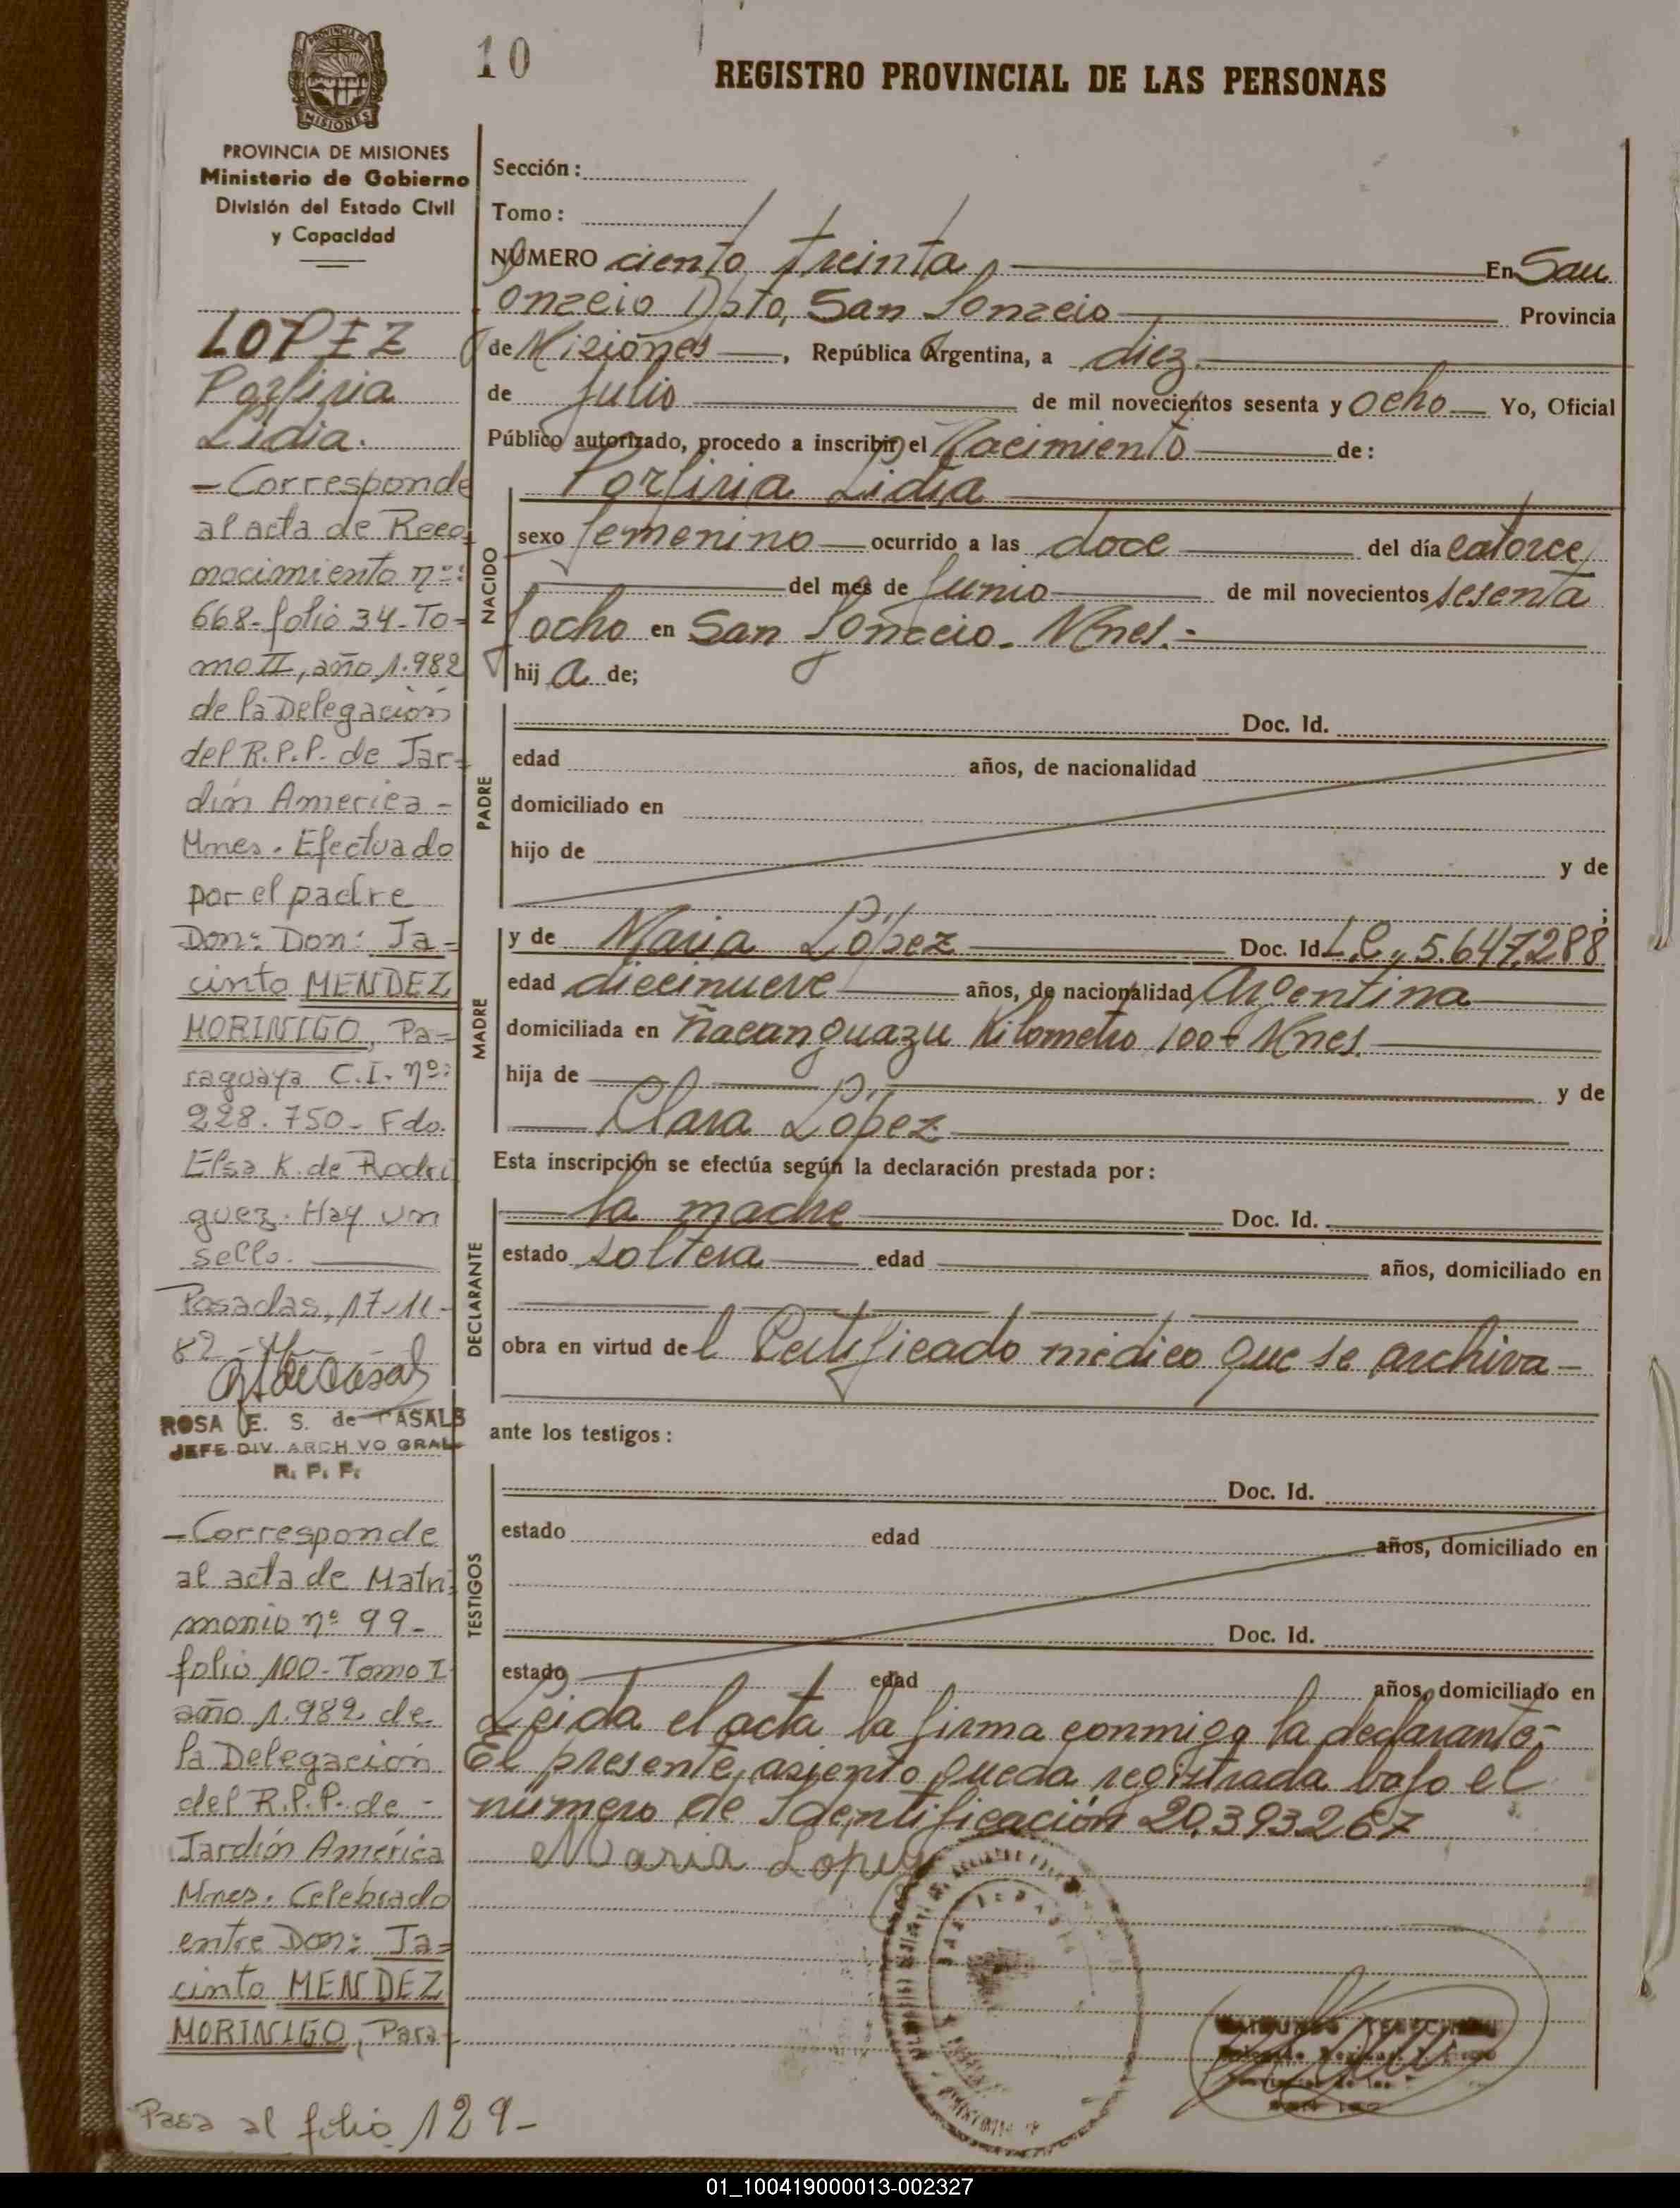 10
REGISTRO PROVINCIAL DE LAS PERSONAS
PROVINCIA DE MISIONES
MISIONES
PROVINCIA DE MISIONES
Ministerio de Gobierno
División del Estado Civil
y Capacidad
LOPEZ
Porfiria
Lidia.
- Corresponde
al acta de Reco-
nocimiento nº:
668-folio 34-To-
mo II, año 1.982
de la Delegación
del R.P.P. de Jar-
dín America -
Mnes. Efectuado
por el padre
Don: Don: Ja-
cinto MENDEZ
MORINIGO, Pa-
raguaya C.I. nº:
228.750- Fdo.
Elsa K. de Rodri
guez. Hay un
sello.
Posadas, 17-11-
82
ROSA E. S. de CASALS
JEFE DIV. ARCHIVO GRAL
R. P. P.
- Corresponde
al acta de Matri-
monio nº 99-
folio 100-Tomo I
año 1.982 de
la Delegación
del R.P.P. de -
Jardín América
Mnes. Celebrado
entre Don: Ja-
cinto MENDEZ
MORINIGO, Para-
Pasa al folio 129-
Sección:
Tomo:
NÚMERO ciento treinta En San
Ignacio Dpto, San Ignacio Provincia
de Misiones, República Argentina, a diez
de Julio de mil novecientos sesenta y ocho Yo, Oficial
Público autorizado, procedo a inscribir el Nacimiento de:
NACIDO
Porfiria Lidia
sexo femenino ocurrido a las doce del día catorce
del mes de Junio de mil novecientos sesenta
y ocho en San Ignacio. Mnes.-
hij a de;
PADRE
Doc. Id.
edad años, de nacionalidad
domiciliado en
hijo de y de
;
MADRE
y de Maria López Doc. Id L.C, 5.647.288
edad diecinueve años, de nacionalidad Argentina
domiciliada en Ñacanguazu Kilometro 100- Mnes.
hija de y de
Clara López
Esta inscripción se efectúa según la declaración prestada por:
DECLARANTE
la madre Doc. Id.
estado soltera edad años, domiciliado en
obra en virtud del Certificado médico que se archiva-
ante los testigos:
TESTIGOS
Doc. Id.
estado edad años, domiciliado en
Doc. Id.
estado edad años, domiciliado en
Leida el acta la firma conmigo la declarante,-
El presente, asiento queda registrada bajo el
número de Identificación 20.393.267
Maria Lopez
01_100419000013-002327